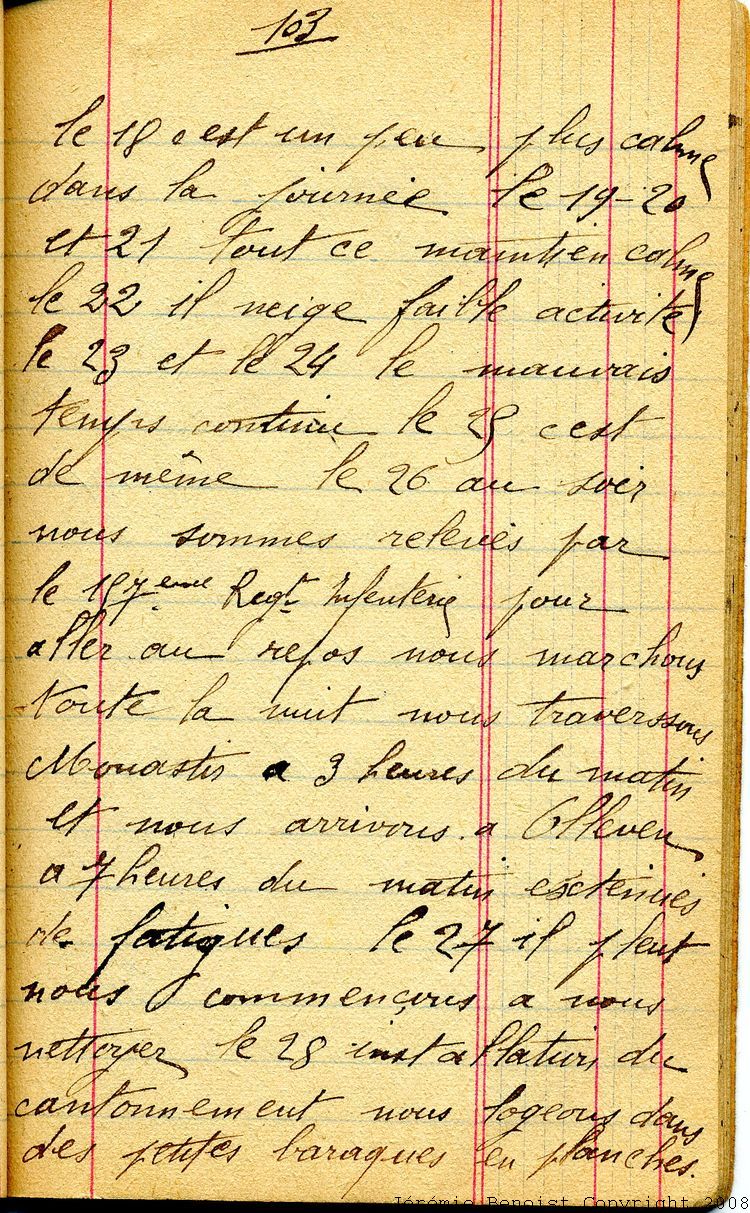 103
le 18 c est un peu plus calme
dans la journée le 19-20
et 21 tout ce maintien calme
le 22 il neige faible activité
le 23 et le 24 le mauvais
temps continu le 25 c est
de même le 26 au soir
nous sommes relevés par
le 187eme Regt Infenterie pour
aller au repos nous marchons
toute la nuit nous traverssons
Monastir a 3 heures du matin
et nous arrivons a
a 7 heures du matin exctenués
de fatigues le 27 il pleut
nous commençons a nous
nettoyer le 28 installation du
cantonnement nous logeons dans
des petites baraques en planches.
Jérémie Benoist Copyright 2008